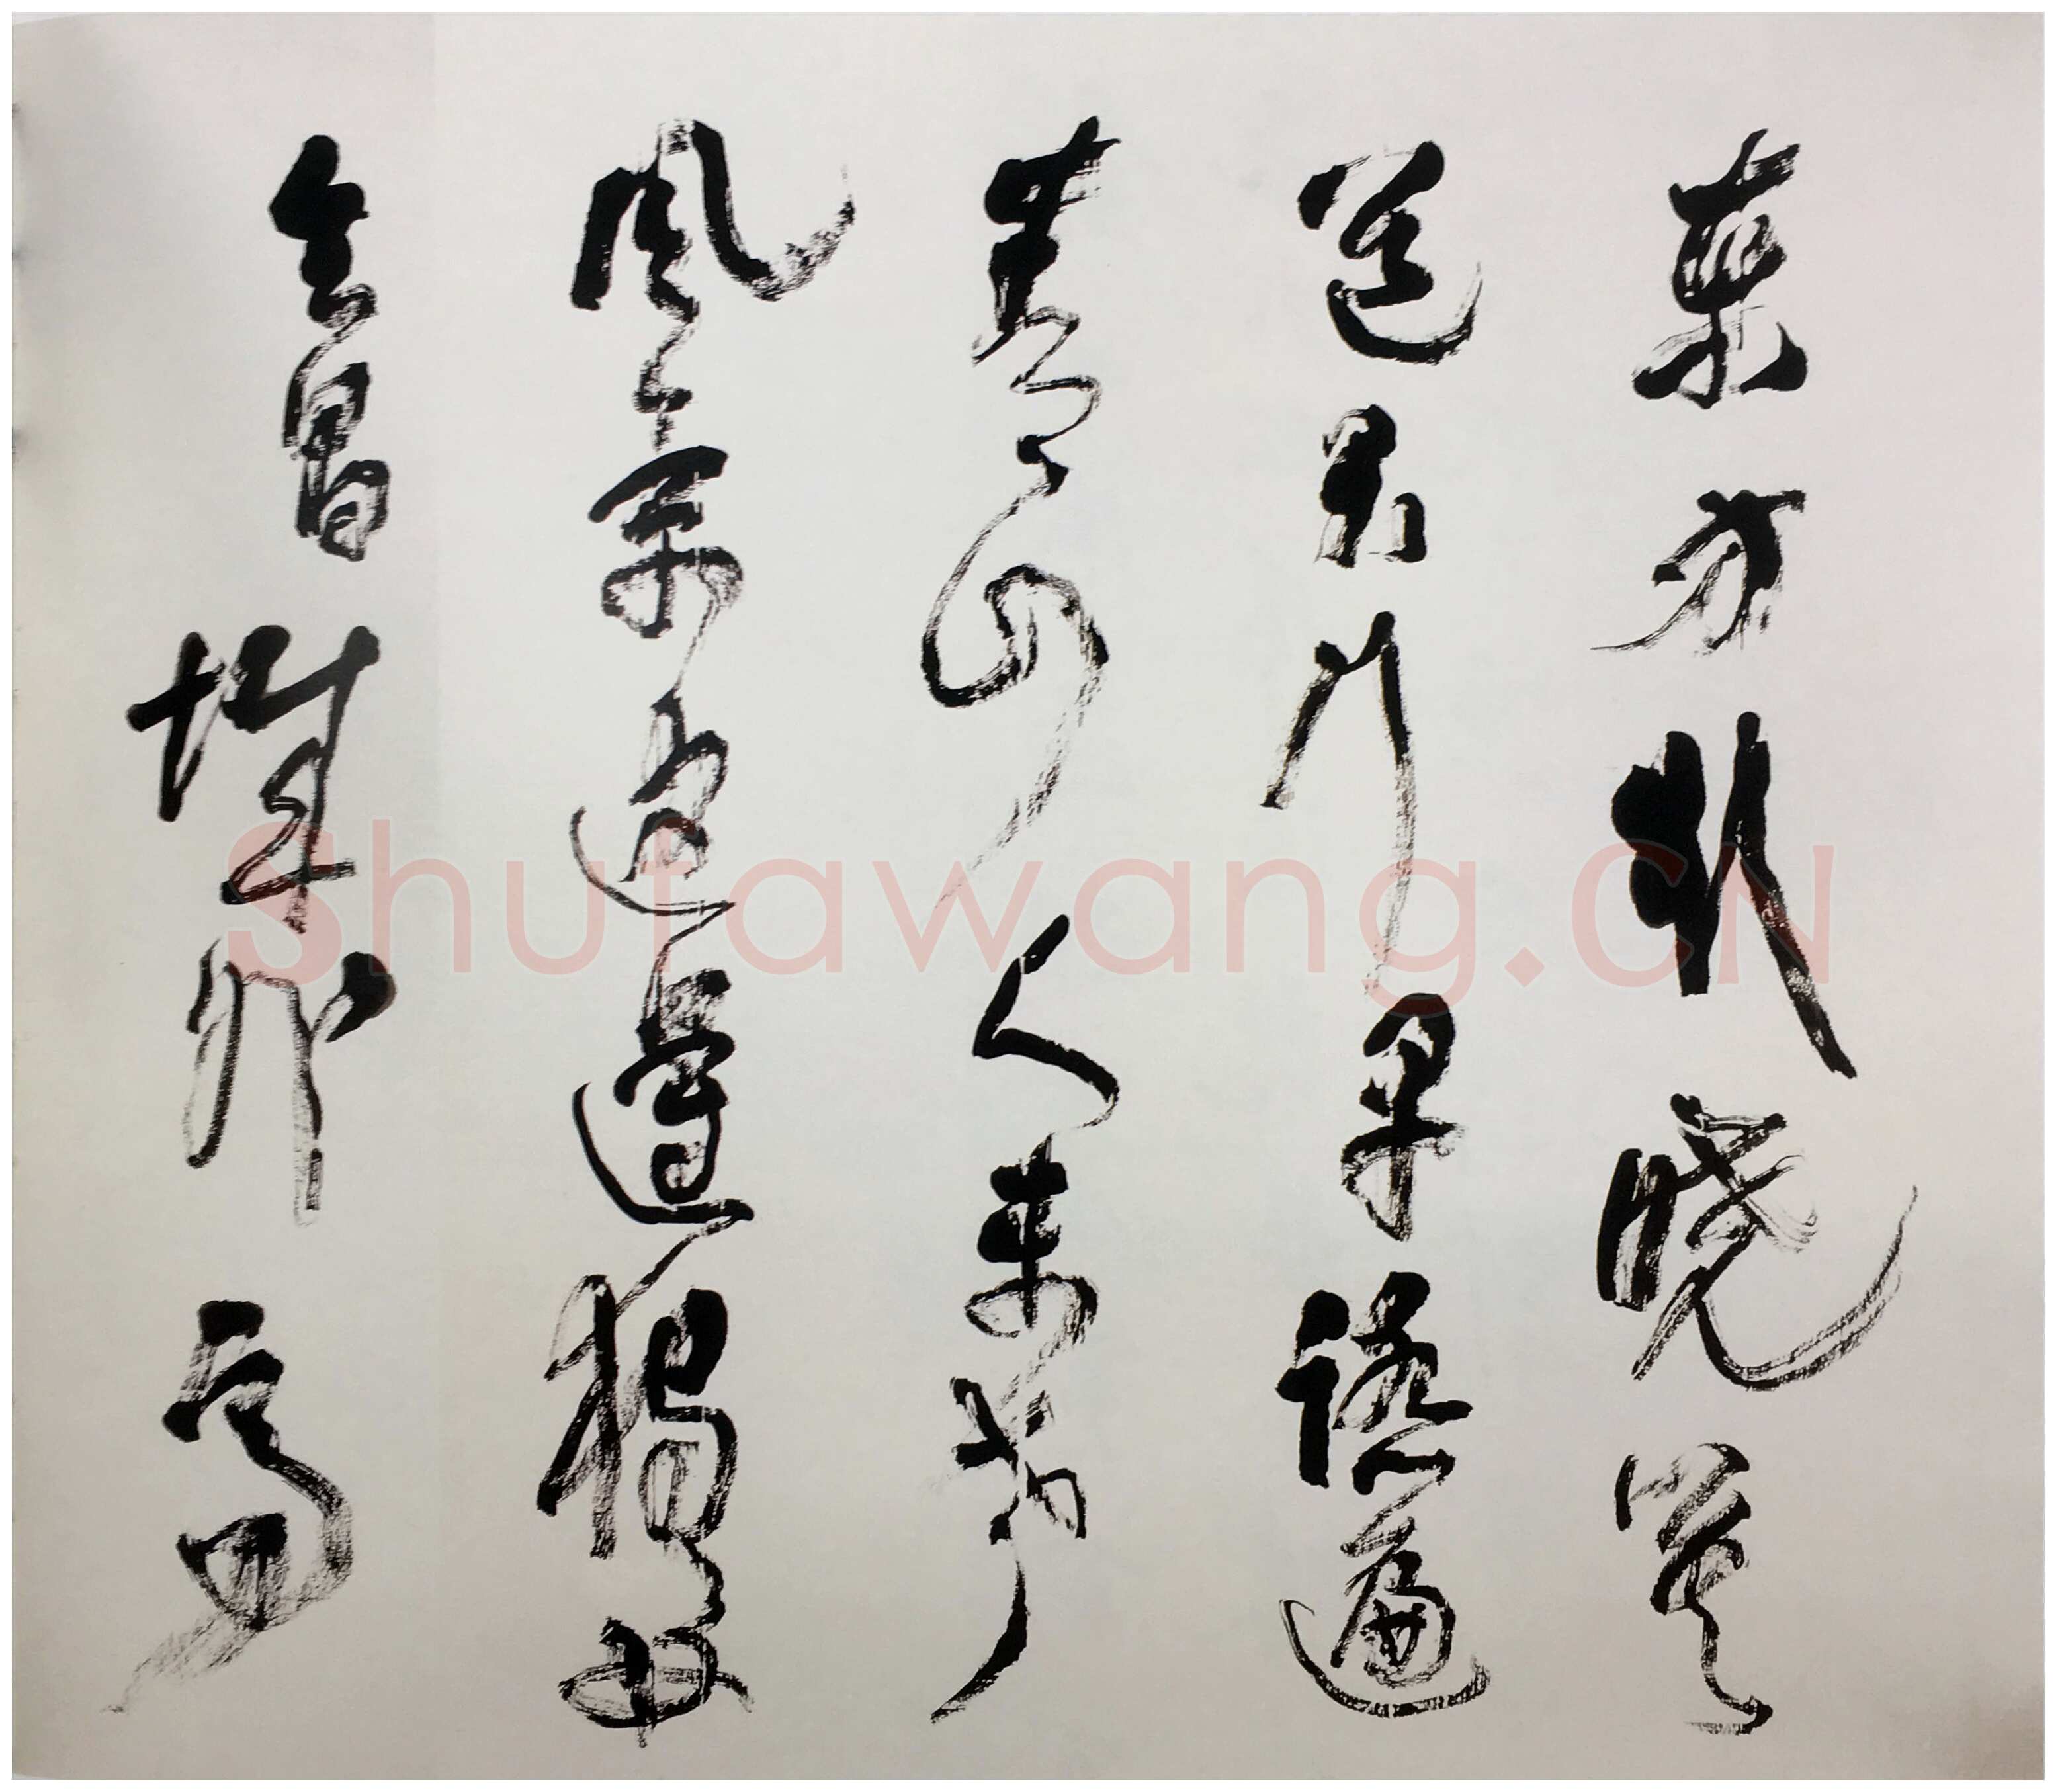 东方欲晓莫
道君行早踏遍
青山人未老
风景这边独好
会昌城外高
Shufawang.CN